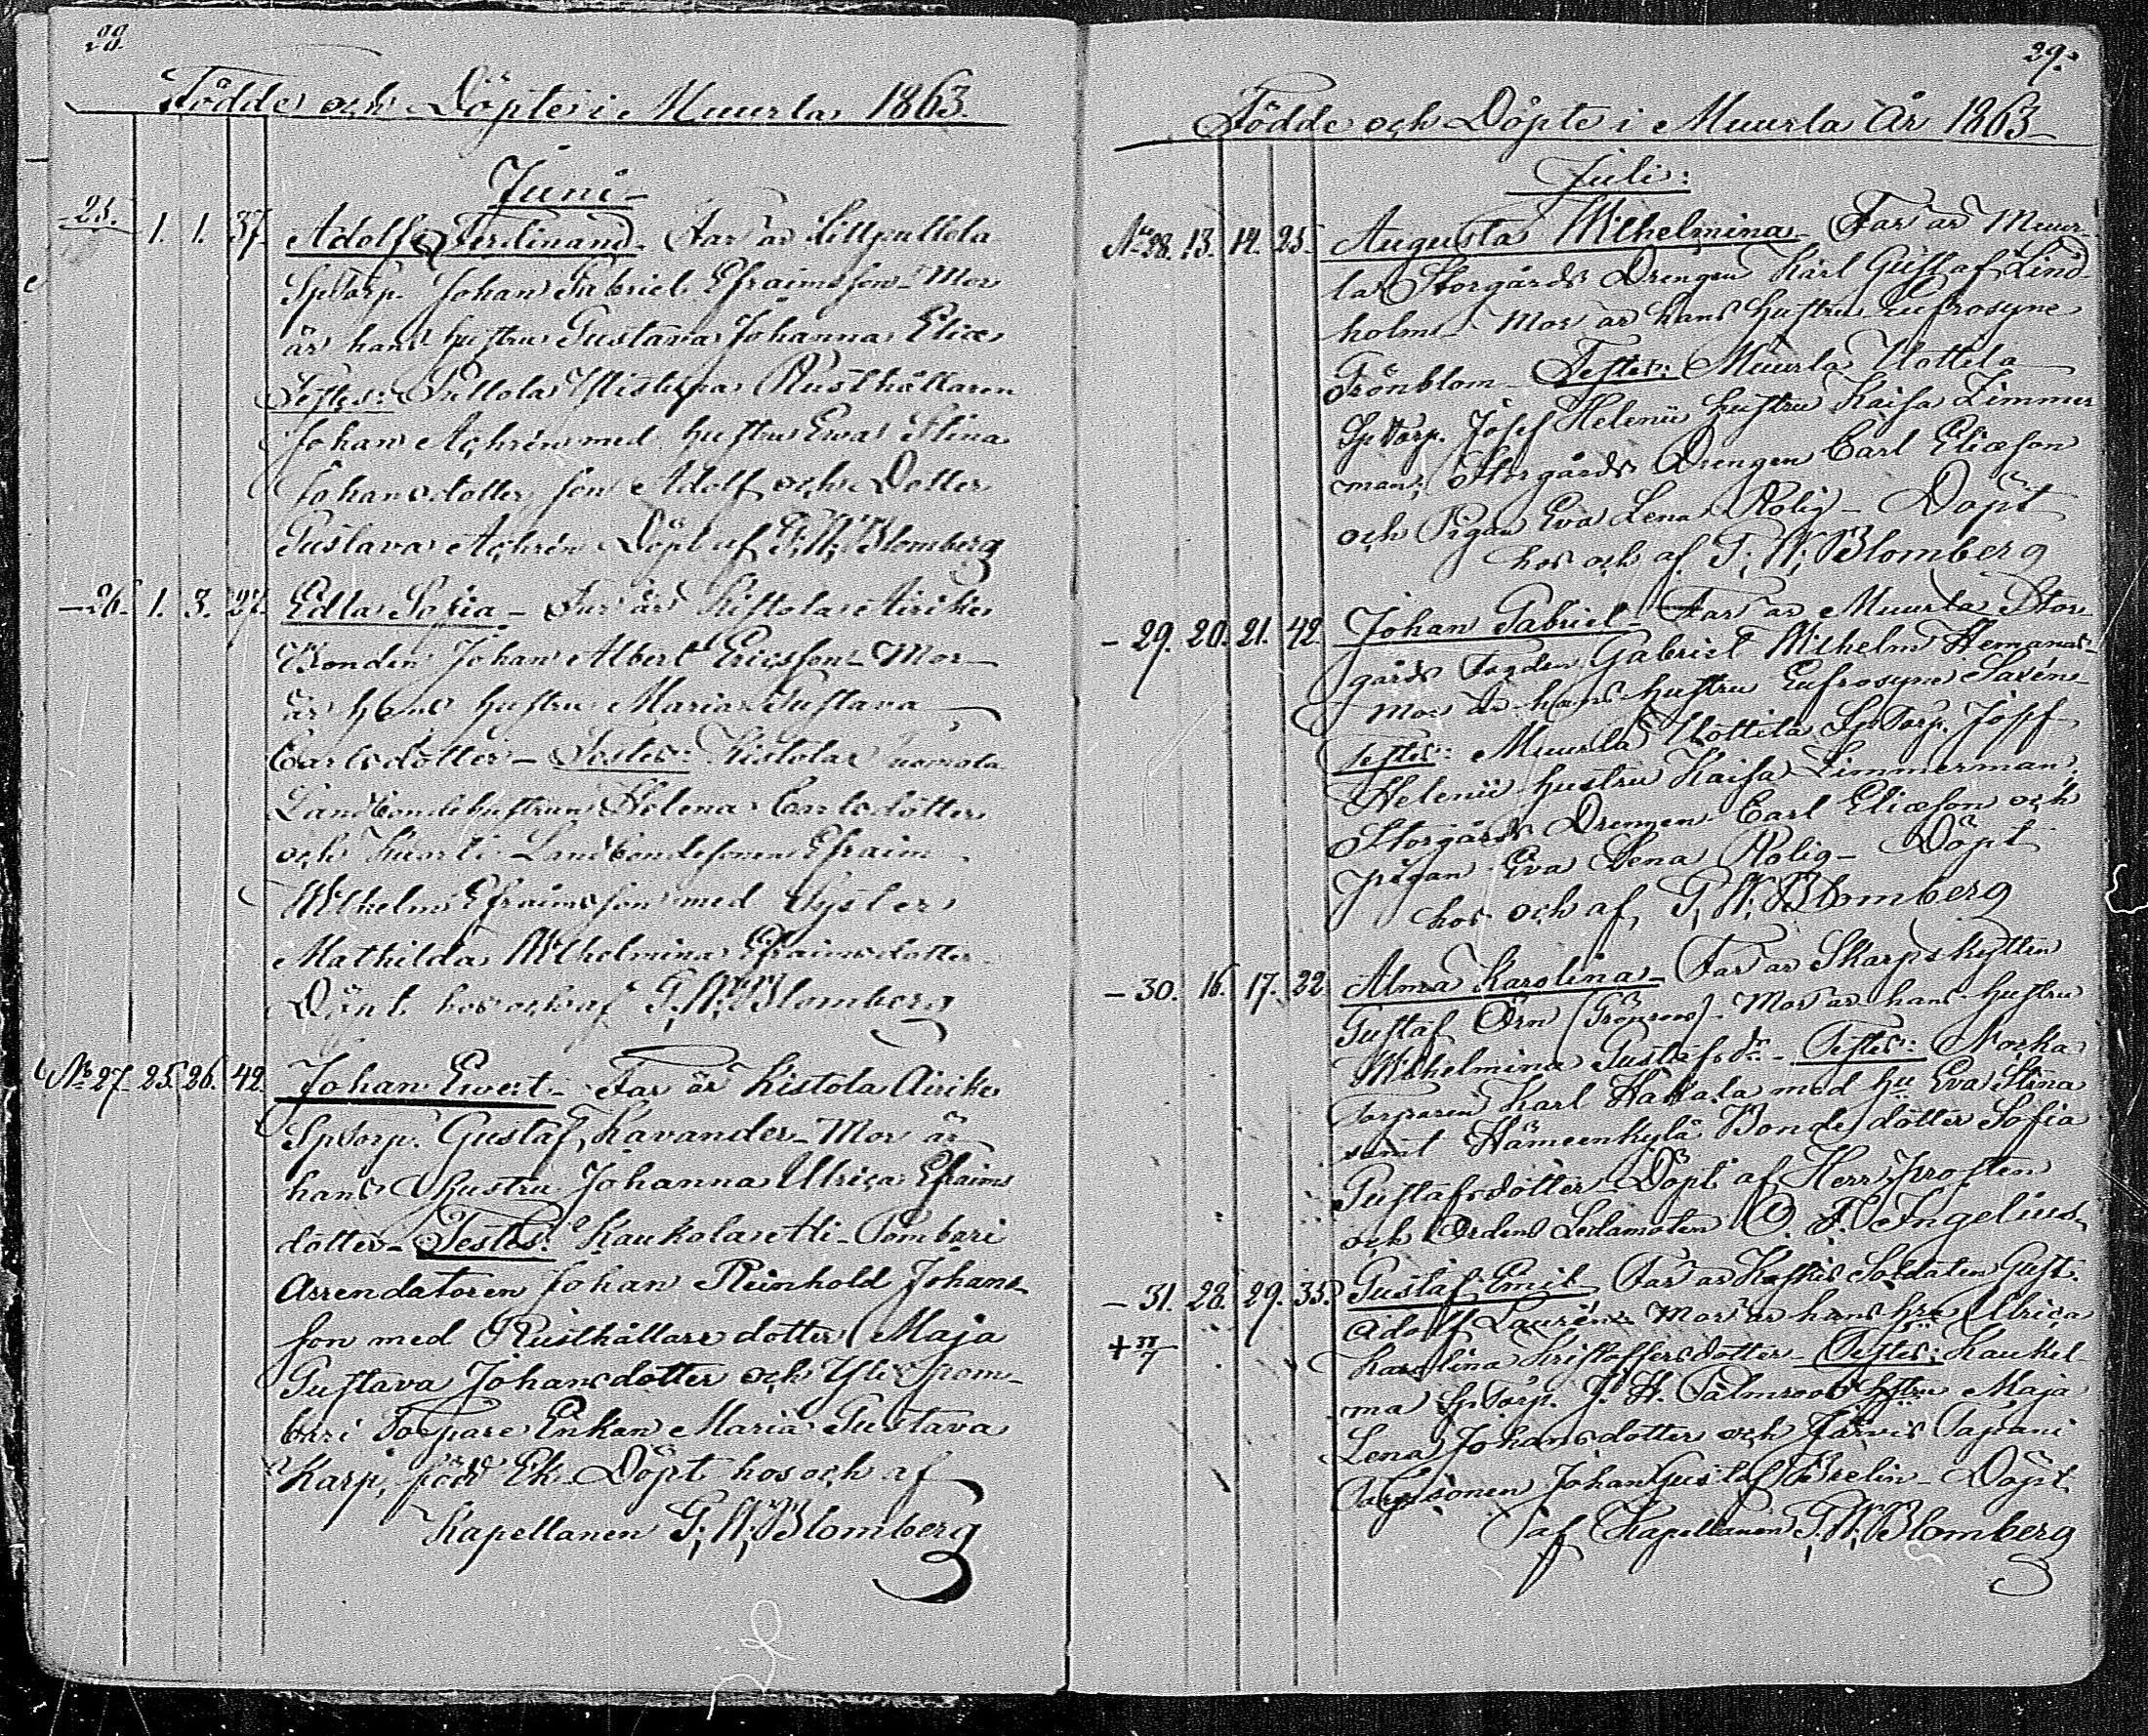 28.
Födde och Döpte i Muurla 1863.
Juni
- 25. 1. 1. 37. Adolf Ferdinand. Far är
SpTorp. Johan Gabriel Efraimsson - Mor
är hans hustru Gustava Johanna Eliæ
Testes: Pullola Rusthållaren
Johan Achrén med hustru Ewa Stina
Johansdotter son Adolf och Dotter
Gustava Achrén Döpt af G. W. Blomberg
- 26. 1. 3. 27. Edla Sofia - Far är Kistola Airike
Bonden Johan Albert Ericsson - Mor
är hans hustru Maria Gustava
Carlsdotter - Testes: Kistola
Landbondehustrun Helena Carlsdotter
och Landbondesonen Efraim
Wilhelm Efraimsson med Syster
Mathilda Wilhelmina Efraimsdotter
Döpt hos och af G. W. Blomberg
No 27. 25. 26. 42. Johan Ewert - Far är Kistola Airike
SpTorp. Gustaf Kavander - Mor är
hans Hustru Johanna Ulrica Efraims
dotter - Testes: Kaukola Ali-Pombari
Arrendatoren Johan Reinhold Johans-
son med Rusthållare dotter Maja
Gustava Johansdotter och Yli Pom-
bari Torpare Enkan Maria Gustava
Karp, född Ek - Döpt hos och af
Kapellanen G. W. Blomberg
29.
Födde och Döpte i Muurla År 1863
Juli:
No 28. 13. 14. 25. Augusta Wilhelmina - Far är Muur-
la Storgårds Drengen Karl Gustaf Lind-
holm - Mor är hans hustru Eufrosyne
Grönblom - Testes: Muurla Uottila
SpTorp. Josef Helenii hustru Kaisa Zimmer
man, Storgårds Drengen Carl Eliæson
och Pigan Eva Lena Rolig - Döpt
hos och af G. W. Blomberg
- 29. 20. 21. 42. Johan Gabriel - Far är Muurla Stor
gårds Fogden Gabriel Wilhelm Hemanus -
Mor är hans hustru Eufrosyne Savén -
Testes: Muurla Uottila SpTorp. Josef
Helenii hustru Kaisa Zimmerman,
Storgårds Drengen Carl Eliæson och
pigan Eva Lena Rolig - Döpt
hos och af G. W. Blomberg
- 30. 16. 17. 22. Alma Karolina - Far är Skarpskytten
Gustaf Örn (Grönroos) - Mor är hans hustru
Wilhelmina Gustafsdr - Testes: Norka
Torparen Karl Hakala med hu Eva Stina
samt Hämeenkylä Bonde dotter Sofia
Gustafsdotter - Döpt af Herr prosten
och Ordens Ledamoten O. F. Ingelius
- 31. 28. 29. 35. Gustaf Emil - Far är Koskis Soldaten Gust.
Adolf Laurén - Mor är hans hru Ulrica
Karolina Kristoffersdotter - Testes: Kaukel-
ma SpTorp. J. H. Palmroos hustru Maja
Lena Johansdotter och Järvis Tapani
Torpsonen Johan Gustaf - Döpt
af Kapellanen G. W. Blomberg